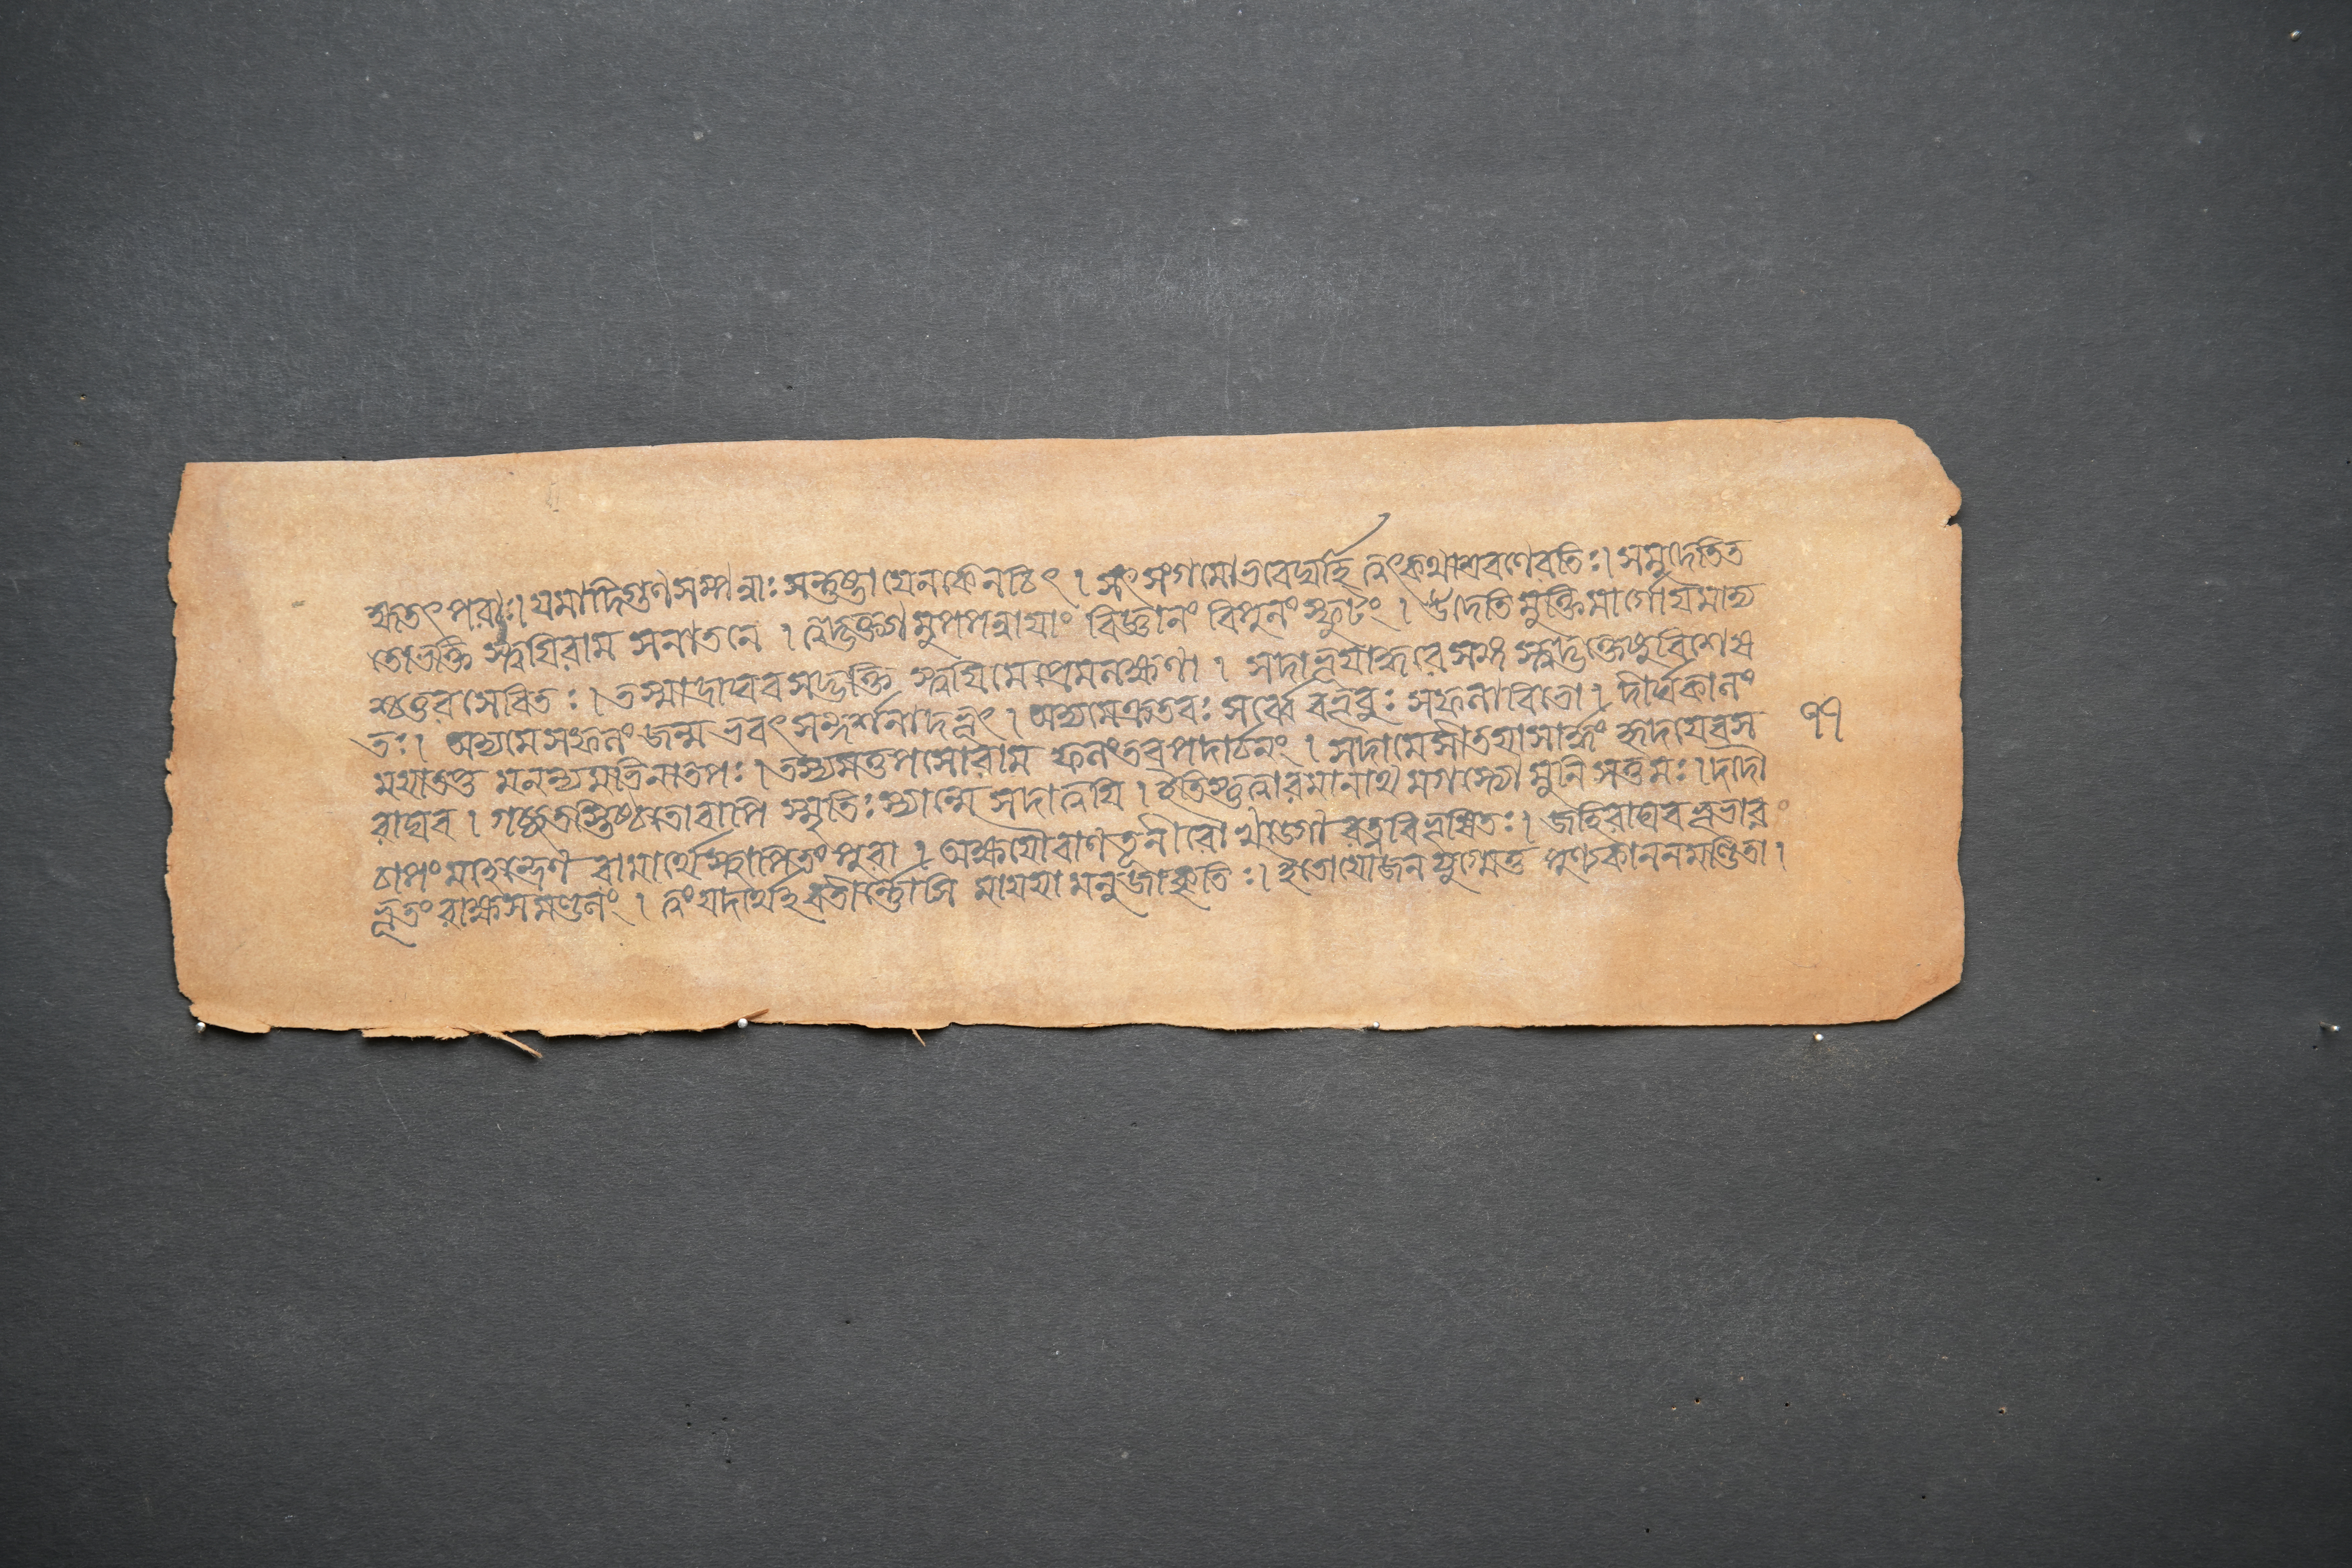 হ্মতৎপরাঃ। যমাদিগুণসম্পন্নাঃ সন্তুষ্টা যেনকেনচিৎ । সৎসংগমো ভবেদ্যর্হি ত্বৎকথাশ্রবণেরতিঃ। সমুদেতিত
তোভক্তি স্ত্বয়িরাম সনাতনে । ত্বদ্ভক্তাবুপপন্নায়াং বিজ্ঞানং বিপুলং স্ফুটং । উদেতিমুক্তিমার্গোয়মাদ্য
শ্চতুরসেবিতঃ । তস্মাদ্রাঘবসদ্ভক্তি স্ত্বয়িমেপ্রেমলক্ষণা । সদাভূয়াদ্ধরেসঙ্গ স্ত্বদ্ভক্তেষুবিশেষ
তঃ। অদ্যমেসফলং জন্ম ভবৎসন্দর্শনাদভূৎ । অদ্যমেক্রতবঃ সর্ব্বে বভূবুঃ সফলাবিভো । দীর্ঘকালং
ময়াতপ্ত মনন্যমতিনাতপঃ । তস্যমত্তপসোরাম ফলংতবপদার্চনং । সদামেসীতয়াসার্দ্ধং হৃদয়েবস
রাঘব । গচ্ছতস্তিষ্ঠতোবাপি স্মৃতিঃ স্যান্মে সদাত্বয়ি । ইতিস্তুত্বারমানাথ মগস্ত্যো মুনিসত্তমঃ । দদৌ
চাপংমাহেন্দ্রেণ রামার্থেস্থাপিতং পুরা । অক্ষয়ৌবাণতূণীরৌ খড়্গো রত্নবিভূষিতঃ । জহিরাঘবভূভার
ভূতংরাক্ষসমণ্ডলং । ত্বংযদার্থেহবতীর্ন্নোসি মায়য়ামনুজাকৃতিঃ। ইতোযোজনযুগ্মেতু পুণ্যকাননমণ্ডিতা ।